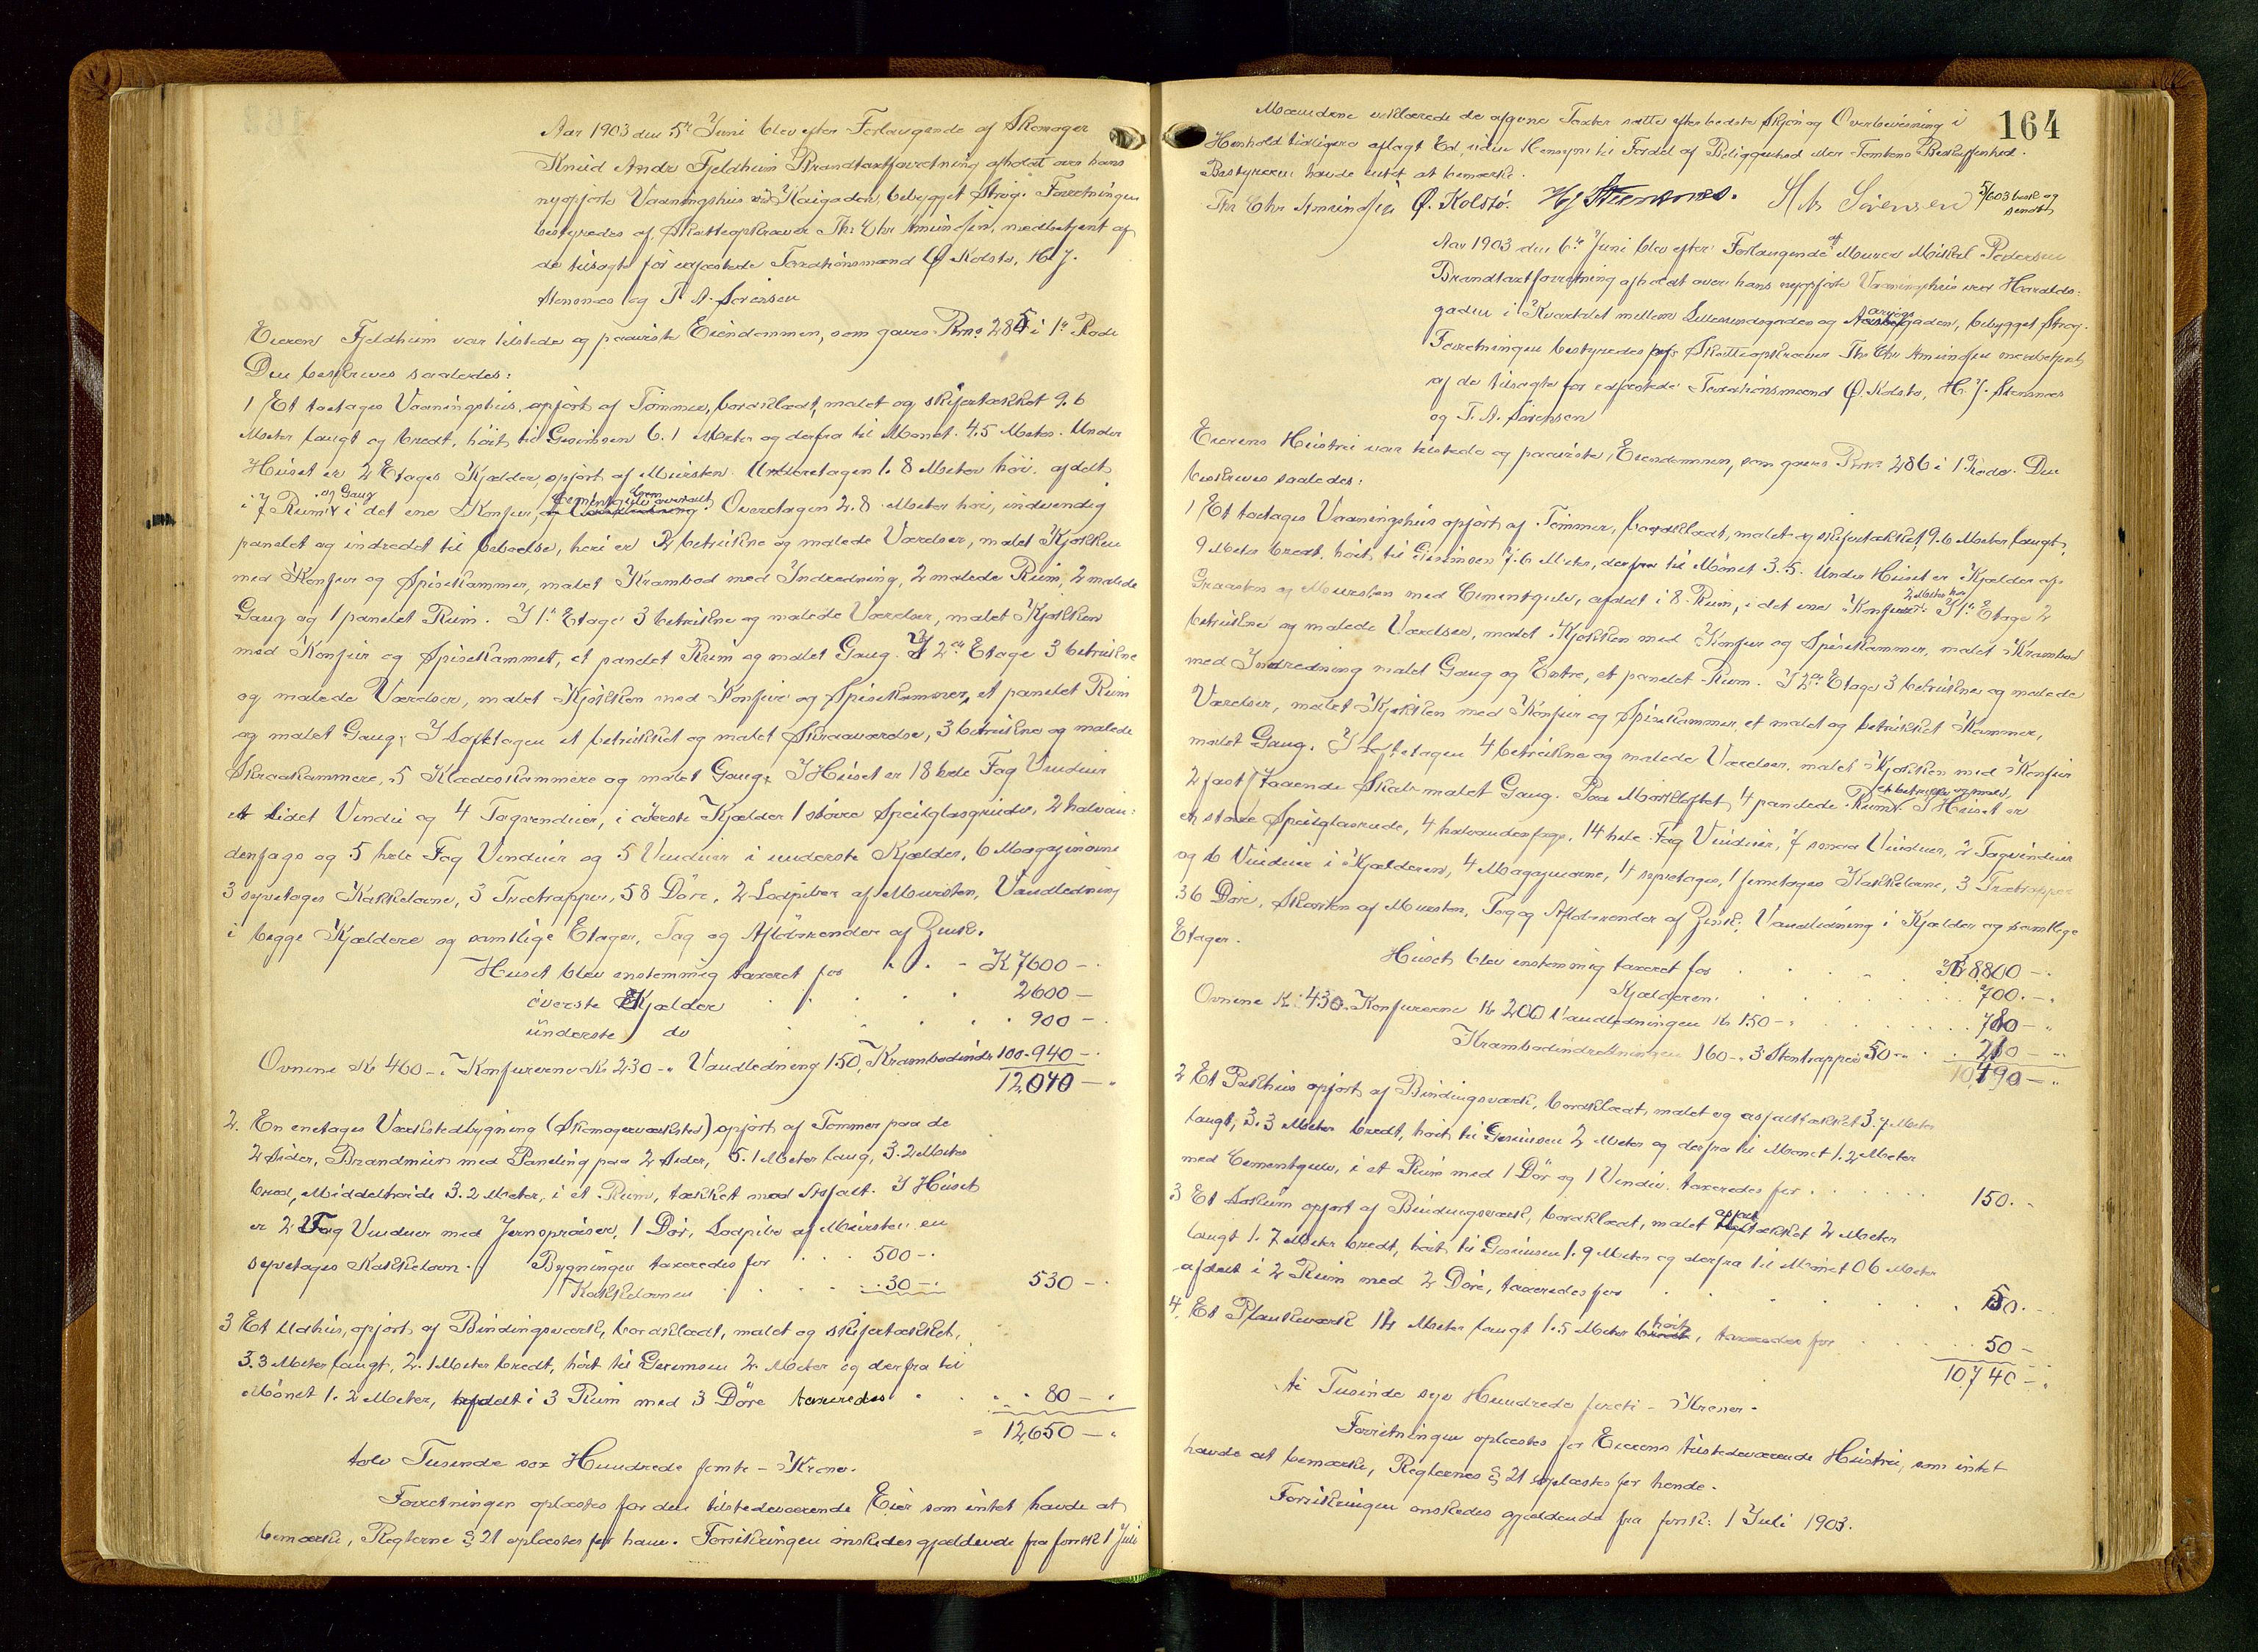 Aar 1903 den 5te Juni blev efter Forlangende af Skomager
Knud Andr Fjeldheim Brandtaxtforretning afholdt over hans
nyopførte Vaaningshus ved Kaigaden, bebygget Strøg. Forretningen
bestyredes af Skatteopkræver Th: Chr Amundsen, medbetjent af
de tilsagte før edfæstede Taxationsmænd Ø. Kolstø, H. J.
Stensnes og T. A. Sørensen
Eieren Fjeldheim var tilstede og paaviste Eiendommen, som gaves Bno. 285 i 1ste Rode
Den beskrives saaledes:
1 Et toetages Vaaningshus, opført af Tømmer, bordklædt, malet og skifertækket 9.6
Meter langt og bredt, høit til Gesimsen 6.1 Meter og derfra til Mønet 4.5 Meter. Under
Huset er 2 Etages Kjælder, opført af Mursten. Underetagen 1.8 Meter høi. afdelt
i 7 Rum og Gang i det ene Konfur, Cementgulv overalt. Overetagen 2.8 Meter høi, indvendig
panelet og indredet til Beboelse, heri er 2 betrukne og malede Værelser, malet Kjøkken
med Konfur og Spisekammer, malet Krambod med Indredning, 2 malede Rum, 2 malede
Gang og 1 panelet Rum. I 1ste Etage 3 betrukne og malede Værelser, malet Kjøkken
med Konfur og Spisekammer, et panelet Rum og malet Gang. I 2den Etage 3 betrukne
og malede Værelser, malet Kjøkken med Konfur og Spisekammer, et panelet Rum
og malet Gang. I Loftetagen et betrukket og malet Skraaværelse, 3 betrukne og malede
Skraakammere, 5 Klædeskammere og malet Gang. I Huset er 18 hele Fag Vinduer
et lidet Vindu og 4 Tagvinduer, i øverste Kjælder 1 større Speilglasrude, 2 halvan-
denfags og 5 hele Fag Vinduer og 5 Vinduer i underste Kjælder, 6 Magazinovne
3 syvetages Kakkelovne, 3 Trætrapper, 58 Døre, 2 Lodpiber af Mursten, Vandledning
i begge Kjældere og samtlige Etager, Tag og Afløbsrender af Zink.
Huset blev enstemmig taxeret for K 7600 —
øverste Kjælder 2600 —
underste do 900 —
Ovnene Kr 460 — Konfurerne Kr 230 — Vandledning 150, Krambodindr 100 - 940 —
12,040 —
2. En enetages Værkstedbygning (Skomagerværksted) opført af Tømmer paa de
2 Sider, Brandmur med Paneling paa 2 Sider, 5.1 Meter lang, 3.2 Meter
bred, Middelhøide 3.2 Meter, i et Rum, tækket med Asfalt. I Huset
er 2 Fag Vinduer med Jernsprosser, 1 Dør, Lodpibe af Mursten en
syvetages Kakkelovn. Bygningen taxeredes for 500 —
Kakkelovnen 30 — 530 —
3 Et Udhus, opført af Bindingsværk, bordklædt, malet og skifertækket,
3.3 Meter langt, 2.1 Meter bredt, høit til Gesimsen 2 Meter og derfra til
Mønet 1.2 Meter, afdelt i 3 Rum med 3 Døre taxeredes 80 —
12,650 —
tolv Tusinde sex Hundrede femti — Kroner.
Forretningen oplæstes for den tilstedeværende Eier som intet havde at
bemærke, Reglerne § 21 oplæstes for ham. Forsikringen ønskedes gjældende fra førstk 1 Juli
164
Mændene erklærede de afgivne Taxter satte efter bedste Skjøn og Overbevisning i
Henhold tidligere aflagt Ed, uden Hensyn til Fordel af Beliggenhed eller Tomtens Beskaffenhed.
Bestyreren havde intet at bemærke.
Th: Chr Amundsen Ø. Kolstø. HJ Stensnes. T. A. Sørensen 5/6 03 besk og
sendt
Aar 1903 den 6te Juni blev efter Forlangende af Murer Mikal Pedersen
Brandtaxtforretning afholdt over hans nyopførte Vaaningshus ved Haralds-
gaden i Kvartalet mellem Lillesundsgaden og gaden, bebygget Strøg.
Forretningen bestyredes af Skatteopkræver Th: Chr Amundsen medbetjent
af de tilsagte før edfæstede Taxationsmænd Ø. Kolstø, H. J. Stensnes
og T. A. Sørensen
Eierens Hustru var tilstede og paaviste Eiendommen, som gaves Bno. 286 i 1 Rode. Den
beskrives saaledes:
1 Et toetages Vaaningshus opført af Tømmer, bordklædt, malet og skifertækket, 9.6 Meter langt,
9 Meter bredt, høit til Gesimsen 7.6 Meter, derfra til Mønet 3.5. Under Huset er Kjælder af
Graasten og Mursten med Cementgulv, afdelt i 8 Rum, i det ene Konfur. 2 Meter høi I 1ste Etage 2
betrukne og malede Værelser, malet Kjøkken med Konfur og Spisekammer, malet Krambod
med Indredning malet Gang og Entre, et panelet Rum. I 2den Etage 3 betrukne og malede
Værelser, malet Kjøkken med Konfur og Spisekammer, et malet og betrukket Kammer,
malet Gang. I Loftetagen 4 betrukne og malede Værelser, malet Kjøkken med Konfur
2 fast staaende Skabe malet Gang. Paa Mørkloftet 4 panelede Rum, et betrukket og malet. I Huset er
en større Speilglasrude, 4 halvandenfags, 14 hele Fag Vinduer, 7 smaa Vinduer, 2 Tagvinduer
og 6 Vinduer i Kjælderen, 4 Magazinovne, 4 syvetages, 1 femetages Kakkelovne, 3 Trætrapper
36 Døre, Skorsten af Mursten, Tag og Afløbsrender af Zink, Vandledning i Kjælder og samtlige
Etager.
Huset blev enstemmig taxeret for Kr 8800 —
Kjælderen 700. —
Ovnene Kr: 430. Konfurerne Kr 200 Vandledningen Kr 150 — 780 —
Krambodindredningen 160 — 3 Stentrapper 50 — 210 —
10,490 —
2 Et Pakhus opført af Bindingsværk, bordklædt, malet og asfalttækket 3.7 Meter
langt, 3.3 Meter bredt, høit til Gesimsen 2 Meter og derfra til Mønet 1.2 Meter
med Cementgulv, i et Rum med 1 Dør og 1 Vindu. taxeredes for 150. —
3 Et Lokum opført af Bindingsværk, bordklædt, malet asfalttækket 2 Meter
langt 1.7 Meter bredt, høit til Gesimsen 1.9 Meter og derfra til Mønet 06 Meter
afdelt i 2 Rum med 2 Døre, taxeredes for 50. —
4. Et Plankeværk 14 Meter langt 1.5 Meter høit, taxeredes for 50 —
10,740 —
ti Tusinde syv Hundrede førti — Kroner.
Forretningen oplæstes for Eierens tilstedeværende Hustru, som intet
havde at bemærke, Reglernes § 21 oplæstes for hende.
Forsikringen ønskedes gjældende fra førstk: 1 Juli 1903.